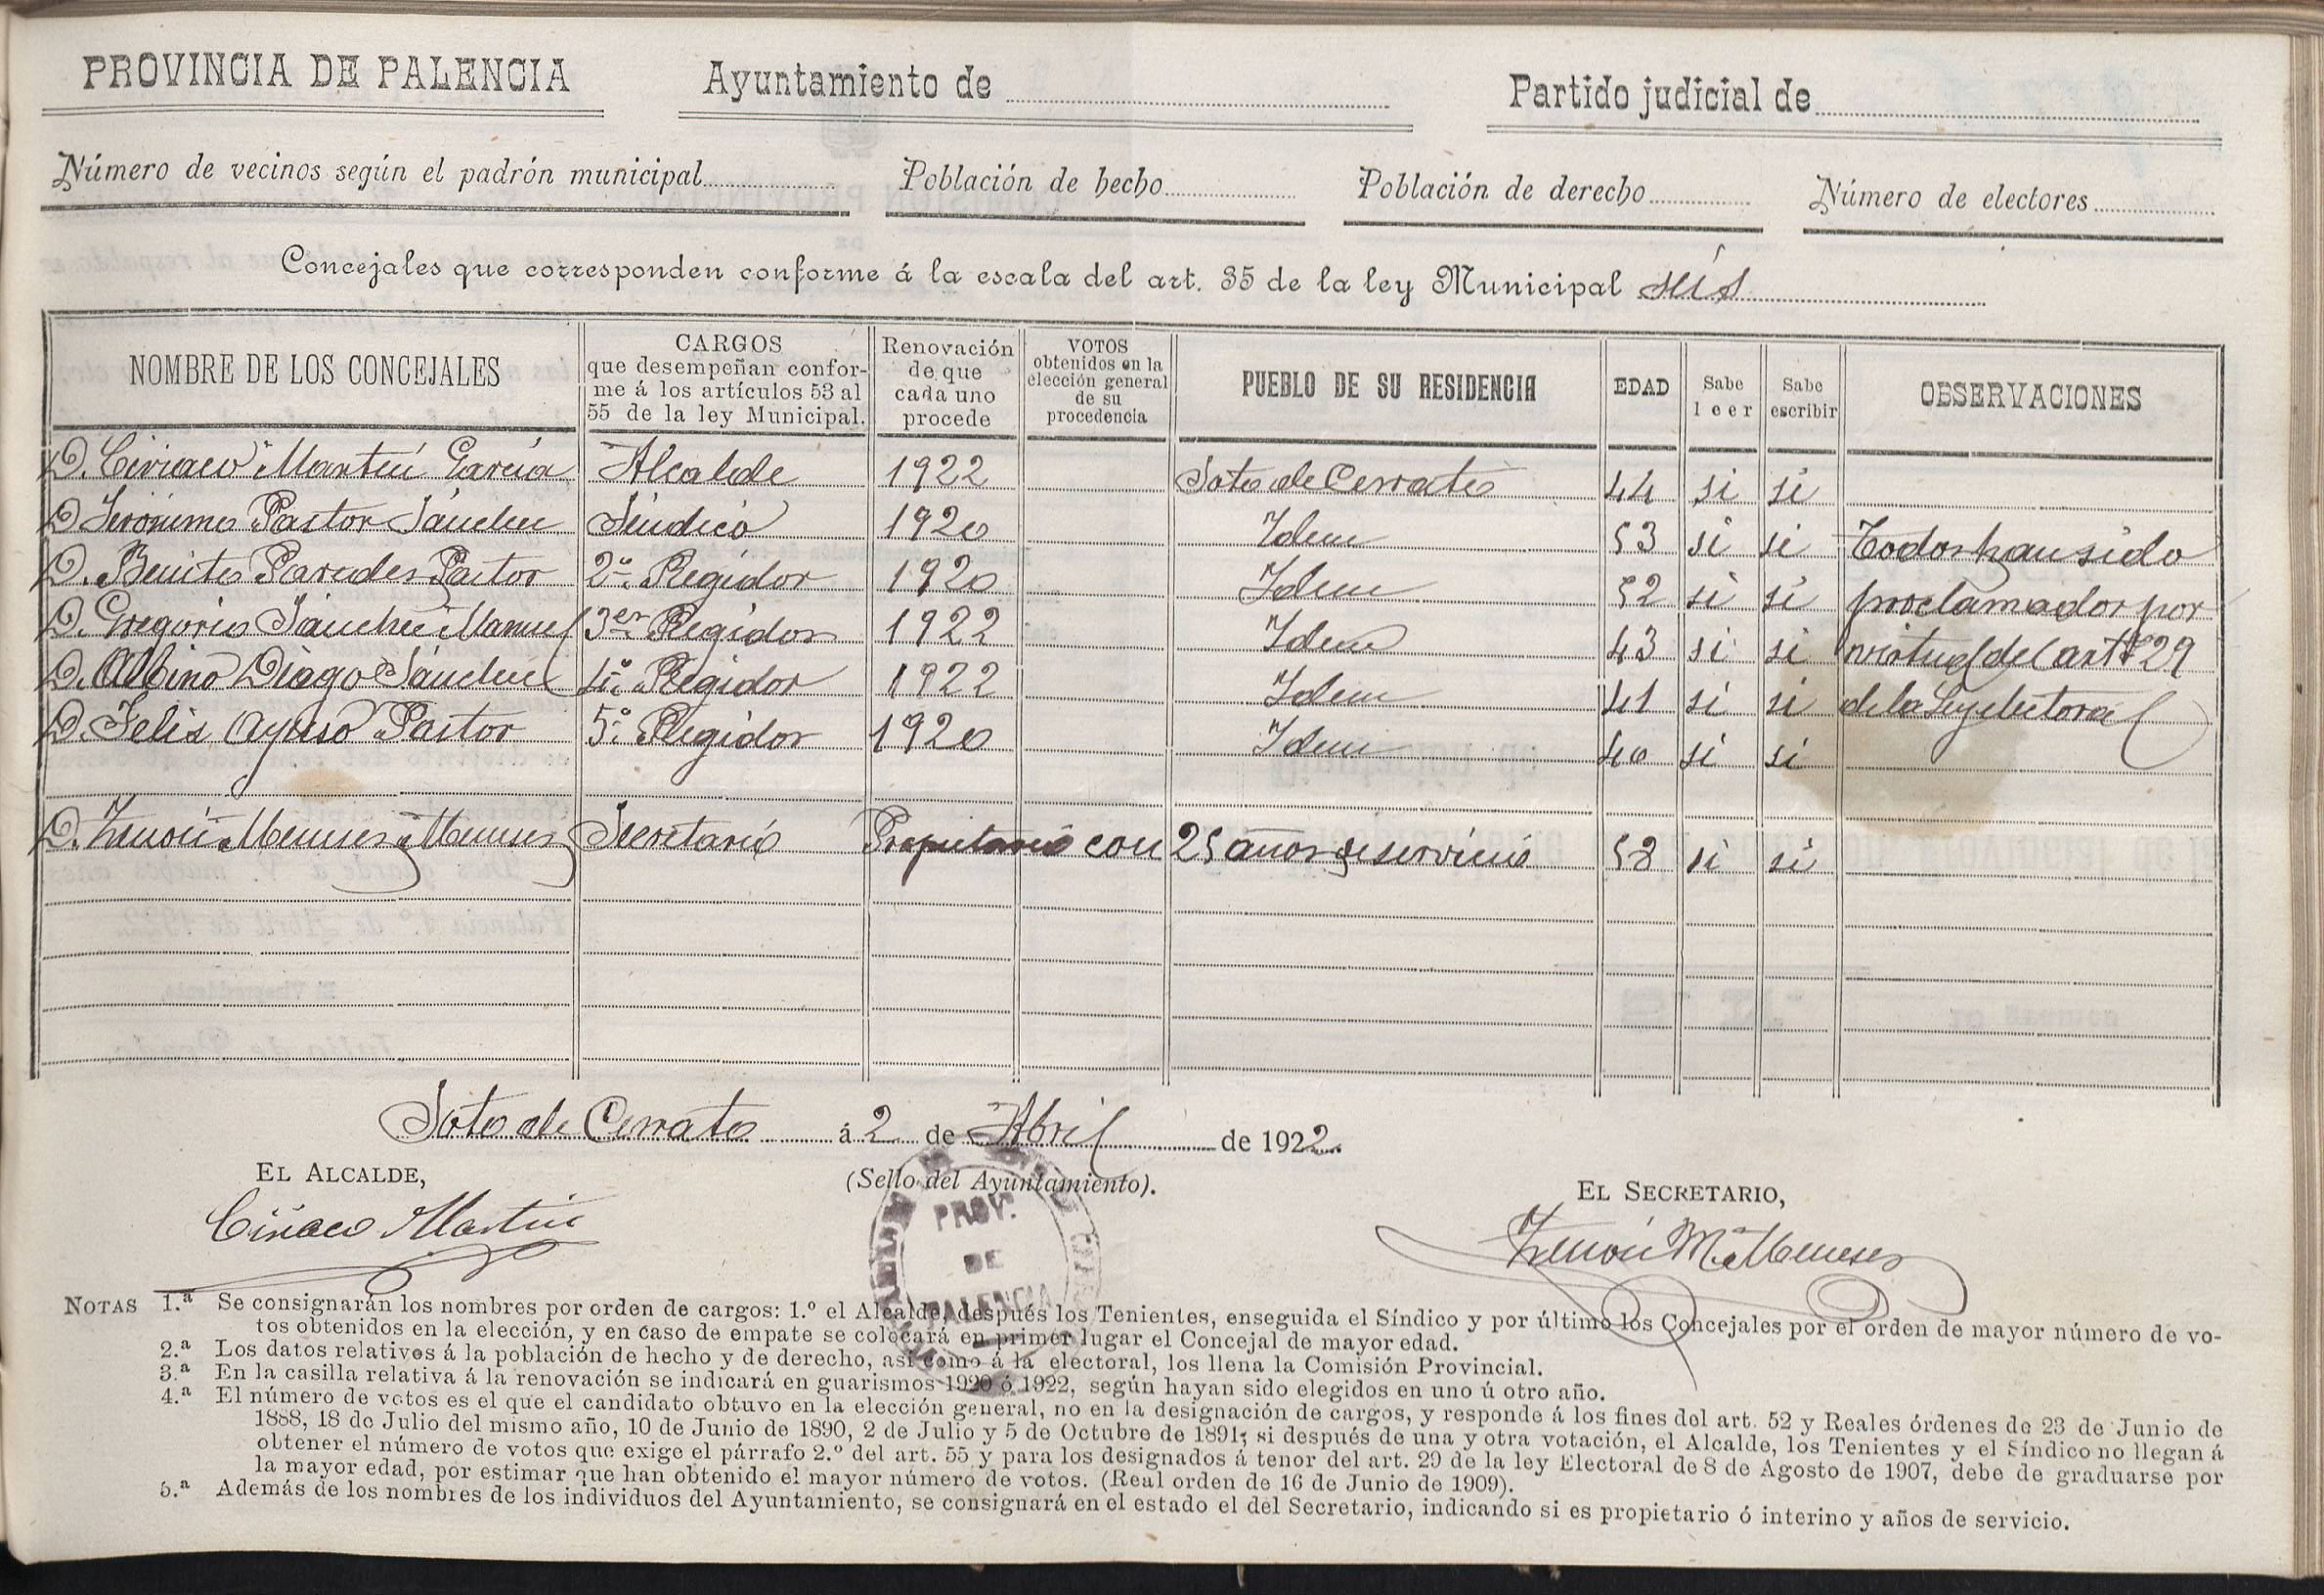 PROVINCIA DE PALENCIA Ayuntamiento de Partido judicial de
Número de vecinos según el padrón municipal Población de hecho Población de derecho Número de electores
Concejales que corresponden conforme á la escala del art. 35 de la ley Municipal seis
NOMBRE DE LOS CONCEJALES
CARGOS
que desempeñan confor-
me á los artículos 53 al
55 de la ley Municipal.
Renovación
de que
cada uno
procede
VOTOS
obtenidos en la
elección general
de su
procedencia
PUEBLO DE SU RESIDENCIA
EDAD
Sabe
leer
Sabe
escribir
OBSERVACIONES
D. Ciriaco Martín García Alcalde 1922 Soto de Cerrato 44 si si
D. Jerónimo Pastor Sánchez Síndico 1920 Idem 53 si si Todos han sido
D. Benito Paredes Pastor 2º Regidor 1920 Idem 52 si si proclamados por
D. Gregorio Sánchez Manuel 3er Regidor 1922 Idem 43 si si virtud del artº 29
D. Albino Diago Sánchez 4º Regidor 1922 Idem 41 si si de la Ley electoral
D. Felix Ayuso Pastor 5º Regidor 1920 Idem 40 si si
D. Zenón Meneses y Meneses Secretario Propietario con 25 años de servicio 58 si si
Soto de Cerrato á 2 de Abril de 1922.
EL ALCALDE,
(Sello del Ayuntamiento).
EL SECRETARIO,
Ciriaco Martín
PROV.
DE
PALENCIA
Zenón M. Meneses
NOTAS 1.ª Se consignarán los nombres por orden de cargos: 1.º el Alcalde, después los Tenientes, enseguida el Síndico y por último los Concejales por el orden de mayor número de vo-
tos obtenidos en la elección, y en caso de empate se colocará en primer lugar el Concejal de mayor edad.
2.ª Los datos relativos á la población de hecho y de derecho, así como á la electoral, los llena la Comisión Provincial.
3.ª En la casilla relativa á la renovación se indicará en guarismos 1920 ó 1922, según hayan sido elegidos en uno ú otro año.
4.ª El número de votos es el que el candidato obtuvo en la elección general, no en la designación de cargos, y responde á los fines del art. 52 y Reales órdenes de 23 de Junio de
1888, 18 de Julio del mismo año, 10 de Junio de 1890, 2 de Julio y 5 de Octubre de 1891; si después de una y otra votación, el Alcalde, los Tenientes y el Síndico no llegan á
obtener el número de votos que exige el párrafo 2.º del art. 55 y para los designados á tenor del art. 29 de la ley Electoral de 8 de Agosto de 1907, debe de graduarse por
la mayor edad, por estimar que han obtenido el mayor número de votos. (Real orden de 16 de Junio de 1909).
5.ª Además de los nombres de los individuos del Ayuntamiento, se consignará en el estado el del Secretario, indicando si es propietario ó interino y años de servicio.